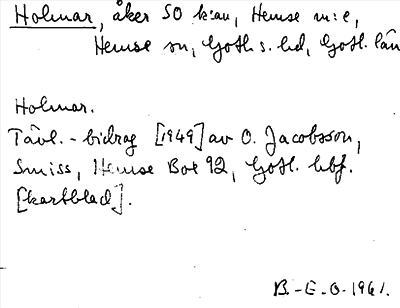 Holmar, åker SO k:an, Hemse m:e,
Hemse sn, Goth s. hd, Gotl. län
Holmar.
Tävl.-bidrag [1949] av O. Jacobsson,
Smiss, Hemse Box 92, Gotl. hbf.
[kartblad].
B.-E.O.1961.